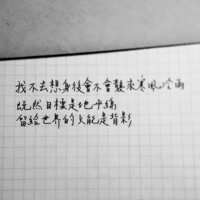 我不去想身後會不會襲來寒風冷雨
既然目標是地平線
留給世界的只能是背影